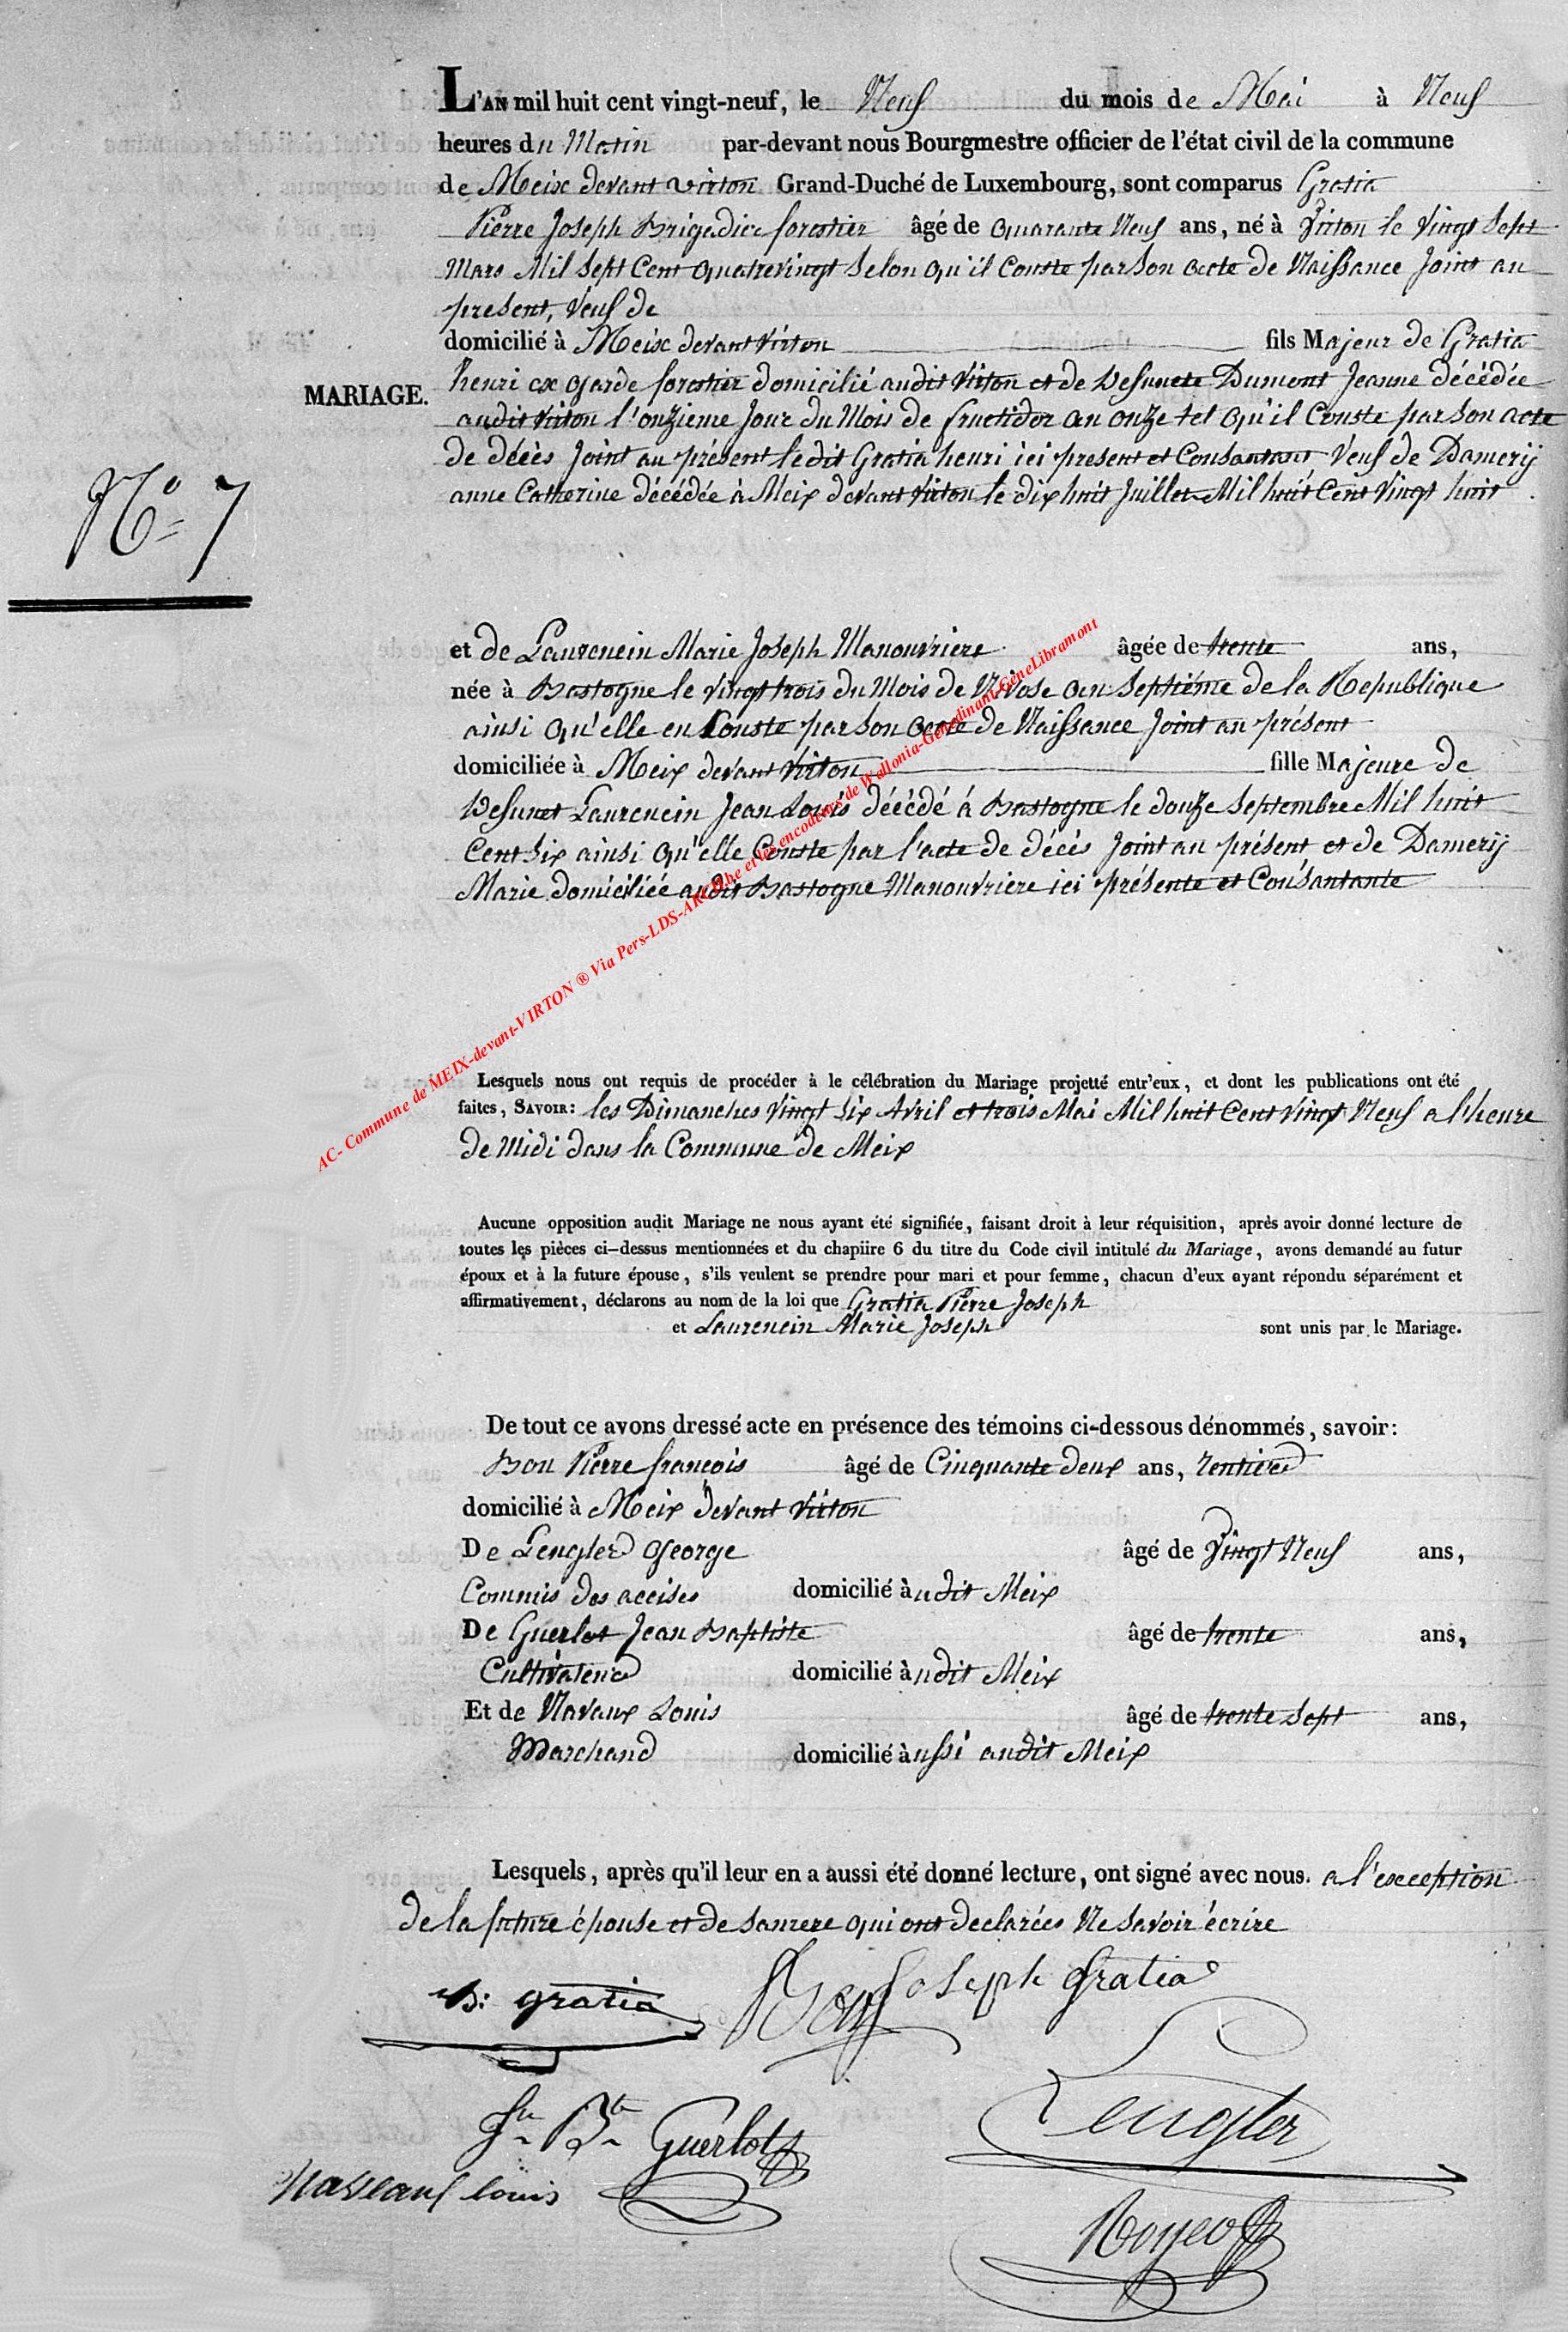 L'AN mil huit cent vingt-neuf, le Neuf du mois de Mai à Neuf
heures du Matin par-devant nous Bourgmestre officier de l'état civil de la commune
de Meix devant virton Grand-Duché de Luxembourg, sont comparus Gratia
Pierre Joseph Brigadier forestier âgé de quarante Neuf ans, né à Virton le Vingt Sept
Mars Mil Sept Cent quatrevingt selon qu'il Conste par son acte de Naissance Joint au
present, Veuf de
domicilié à Meix devant Virton fils Majeur de Gratia
henri ex garde forestier domicilié audit Virton et de Defuncte Dumont Jeanne décédée
MARIAGE.
audit virton l'onzieme Jour du Mois de fructidor an onze tel qu'il Conste par son acte
de décès Joint au présent le dit Gratia henri ici present et Consantant Veuf de Damerij
anne Catherine décédée à Meix devant virton le dix huit Juillet Mil huit Cent Vingt huit
No 7
et de Laurencin Marie Joseph Manouvriere âgée de trente ans,
née à Bastogne le vingt trois du Mois de Nivose an Septiéme de la Republique
ainsi qu'elle en Conste par son acte de Naissance Joint au présent
domiciliée à Meix devant Virton fille Majeure de
Defunct Laurencin Jean Louis décédé à Bastogne le douze Septembre Mil huit
Cent Six ainsi qu'elle Conste par l'acte de décès Joint au présent et de Damerij
Marie domiciliée audit Bastogne Manouvriere ici présente et Consantante
AC- Commune de MEIX-devant-VIRTON ® Via Pers-LDS-ARCH.be et les encodeurs de Wallonia-Genedinant-GeneLibramont
Lesquels nous ont requis de procéder à le célébration du Mariage projetté entr'eux, et dont les publications ont été
faites, SAVOIR: les Dimanches Vingt Six Avril et trois Mai Mil huit Cent Vingt Neuf a l'heure
de Midi dans la Commune de Meix
Aucune opposition audit Mariage ne nous ayant été signifiée, faisant droit à leur réquisition, après avoir donné lecture de
toutes les pièces ci-dessus mentionnées et du chapiire 6 du titre du Code civil intitulé du Mariage, avons demandé au futur
époux et à la future épouse, s'ils veulent se prendre pour mari et pour femme, chacun d'eux ayant répondu séparément et
affirmativement, déclarons au nom de la loi que Gratia Pierre Joseph
et Laurencin Marie Joseph sont unis par le Mariage.
De tout ce avons dressé acte en présence des témoins ci-dessous dénommés, savoir:
Bon Pierre françois âgé de Cinquante deux ans, rentier
domicilié à Meix devant Virton
De Lengler George âgé de Vingt Neuf ans,
Commis des accises domicilié àudit Meix
De Guerlot Jean Baptiste âgé de trente ans,
Cultivateur domicilié àudit Meix
Et de Navaux Louis âgé de trente Sept ans,
Marchand domicilié àussi audit Meix
Lesquels, après qu'il leur en a aussi été donné lecture, ont signé avec nous. a l'exception
de la future épouse et de sa mere qui ont declarées Ne Savoir écrire
h: gratia Bon Joseph Gratia
Jn Bte Guerlot Lengler
Naveaux louis